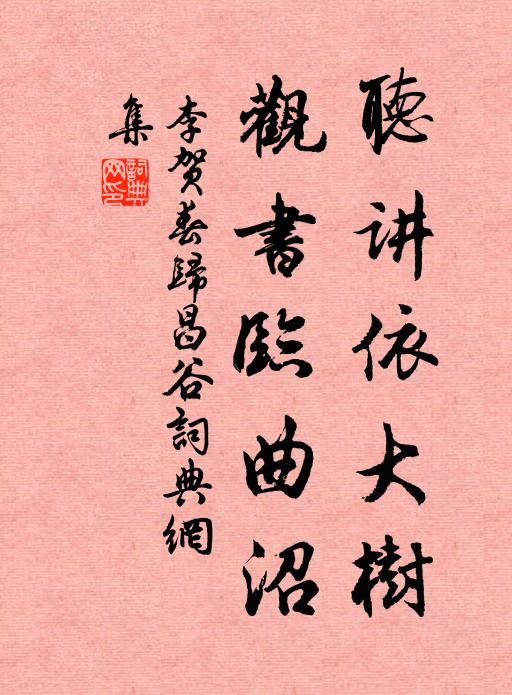 聽讲依大樹
觀書臨曲沼
李贺春歸昌谷詞典網
集
詞典网印